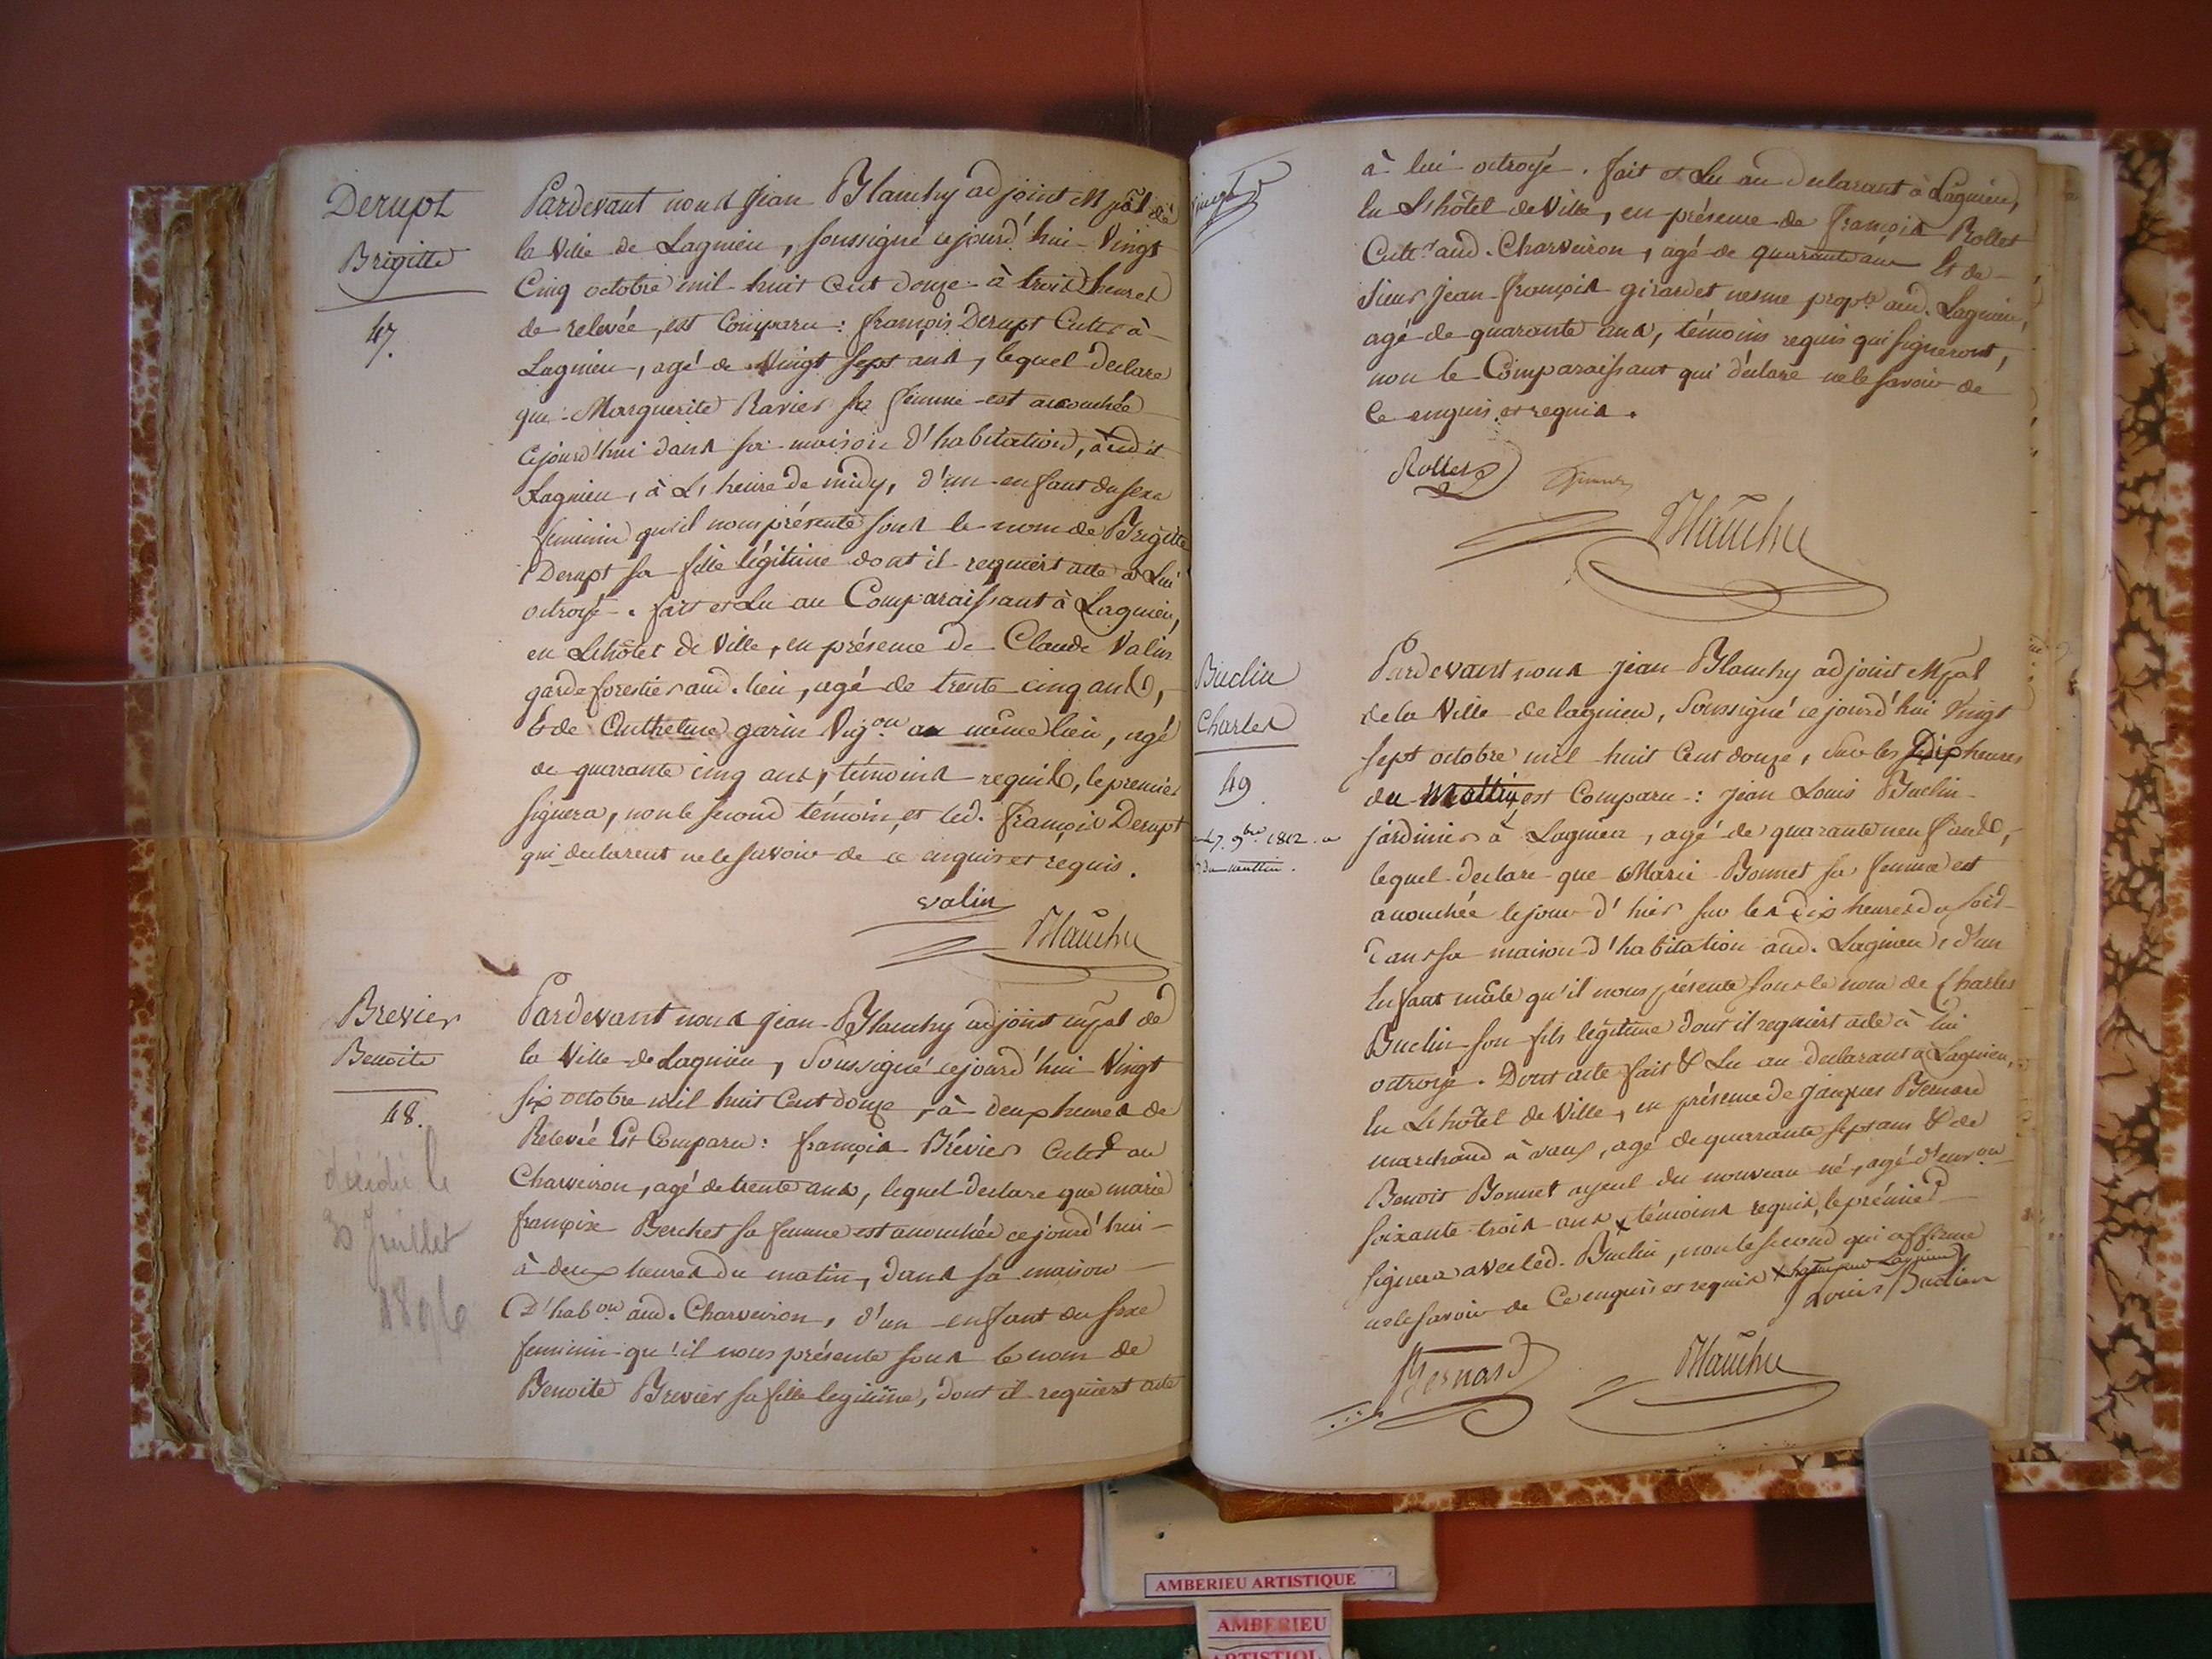 Derupt
Brigitte
47.
Pardevant nous Jean Blanchy adjoint Mpal de
la Ville de Lagnieu, soussigné cejourd'hui Vingt
Cinq octobre mil huit Cent douze à trois heures
de relevée, est Comparu : françois Derupt Culter à
Lagnieu, agé de Vingt sept ans, lequel declare
que Marguerite Ravier sa femme est accouchée
cejourd'hui dans sa maison d'habitation, audit
Lagnieu, à L'heure de midy, d'un enfant du sexe
feminin qu'il nous présente sous le nom de Brigitte
Derupt sa fille légitime dont il requiert acte à Lui
octroyé. fait et Lu au Comparaissant à Lagnieu,
en L'hôtel de Ville, en présence de Claude Valin
garde forestier aud. lieu, agé de trente cinq ans,
Et de Anthelme garin Vig.on au même lieu, agé
de quarante cinq ans, témoins requis, le premier
signera, non le second témoin, et led. françois Derupt
qui declarent ne le savoir de ce enquis et requis.
valin
Blanchy
Brevier
Benoite
48.
décédée le
30 Juillet
1896
Pardevant nous Jean Blanchy adjoint mpal de
la Ville de Lagnieu, Soussigné cejourd'hui Vingt
six octobre mil huit Cent douze, à deux heures de
Relevée Est Comparu : françois Brévier Culter au
Charveiron, agé de trente ans, lequel declare que marie
françoise Berchet sa femme est accouchée cejourd'hui
à deux heures du matin, dans sa maison
D'hab.on aud. Charveiron, d'un enfant du sexe
feminin qu'il nous présente sous le nom de
Benoite Brevier sa fille legitime, dont il requiert acte
Vingt
à lui octroyé. fait et Lu au declarant à Lagnieu,
En L'hôtel de Ville, en présence de françois Rollet
Cult.r aud. Charveiron, agé de quarante ans Et de
Sieur Jean françois girardet nesme prop.re aud. Lagnieu,
agé de quarante ans, témoins requis qui signeront,
non le Comparaissant qui déclare ne le savoir de
Ce enquis et requis.
Rollet
Blanchy
Buclin
Charles
49.
27. 9bre 1812. a
du mattin.
Pardevant nous Jean Blanchy adjoint Mpal
de la Ville de lagnieu, Soussigné cejourd'hui Vingt
sept octobre mil huit Cent douze, sur les Dix heures
du Mattin, est Comparu : Jean Louis Buclin
jardinier à Lagnieu, agé de quarante neuf ans,
lequel declare que Marie Bonnet sa femme est
accouchée le jour d'hier sur les dix heures du soir
dans sa maison d'habitation aud. Lagnieu, d'un
Enfant mâle qu'il nous présente sous le nom de Charles
Buclin son fils légitime dont il requiert acte à lui
octroyé. Dont acte fait & Lu au declarant à Lagnieu,
En L'hôtel de Ville, en présence de Jacques Bernard
marchand à vaux, agé de quarante sept ans & de
Benoit Bonnet ayeul du nouveau né, agé d'env.on
soixante trois ans x témoins requis, le prémier
signera avec led. Buclin, non le second qui affirme
ne le savoir de Ce enquis et requis
Louis Buclin
Bernard
Blanchy
AMBERIEU ARTISTIQUE
AMBERIEU
ARTISTIQU